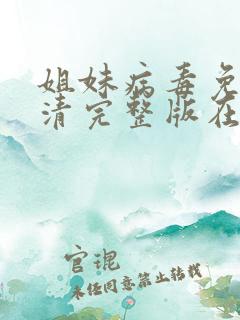 姐妹病毒免
清完整版在
官琨
未经同意禁止转载